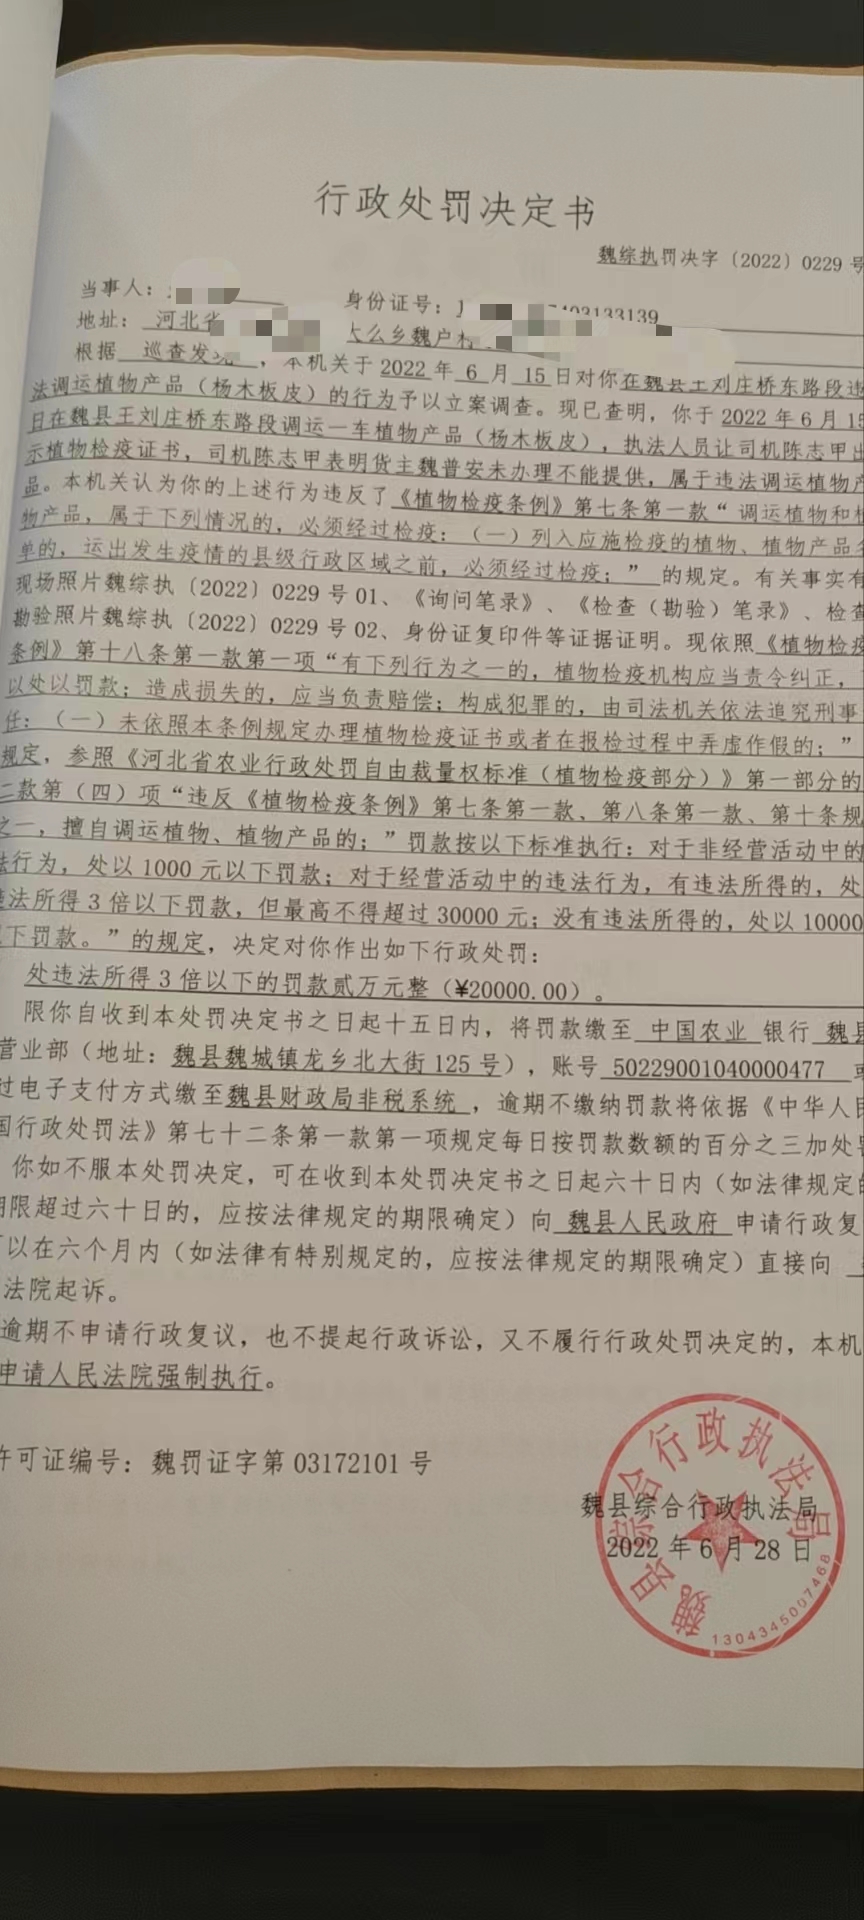 行政处罚决定书
魏综执罚决字〔2022〕0229号
当事人： 身份证号： 403133139
地址： 河北省 大么乡魏户村
根据 巡查发现 ，本机关于 2022 年 6 月 15 日对你在魏县王刘庄桥东路段违
法调运植物产品（杨木板皮）的行为予以立案调查。现已查明，你于 2022 年 6 月 15
日在魏县王刘庄桥东路段调运一车植物产品（杨木板皮），执法人员让司机陈志甲出
示植物检疫证书，司机陈志甲表明货主魏普安未办理不能提供，属于违法调运植物产
品。本机关认为你的上述行为违反了《植物检疫条例》第七条第一款“ 调运植物和植
物产品，属于下列情况的，必须经过检疫：（一）列入应施检疫的植物、植物产品名
单的，运出发生疫情的县级行政区域之前，必须经过检疫；” 的规定。有关事实有
现场照片魏综执〔2022〕0229 号 01、《询问笔录》、《检查（勘验）笔录》、检查
勘验照片魏综执〔2022〕0229 号 02、身份证复印件等证据证明。现依照《植物检疫
条例》第十八条第一款第一项“有下列行为之一的，植物检疫机构应当责令纠正，
以处以罚款；造成损失的，应当负责赔偿；构成犯罪的，由司法机关依法追究刑事
任：（一）未依照本条例规定办理植物检疫证书或者在报检过程中弄虚作假的；”
规定，参照《河北省农业行政处罚自由裁量权标准（植物检疫部分）》第一部分的
二款第（四）项“违反《植物检疫条例》第七条第一款、第八条第一款、第十条规
之一，擅自调运植物、植物产品的；”罚款按以下标准执行：对于非经营活动中的
法行为，处以 1000 元以下罚款；对于经营活动中的违法行为，有违法所得的，处
违法所得 3 倍以下罚款，但最高不得超过 30000 元；没有违法所得的，处以 10000
以下罚款。”的规定，决定对你作出如下行政处罚：
处违法所得 3 倍以下的罚款贰万元整（¥20000.00）。
限你自收到本处罚决定书之日起十五日内，将罚款缴至 中国农业 银行 魏县
营业部（地址：魏县魏城镇龙乡北大街 125 号），账号 50229001040000477 或
过电子支付方式缴至魏县财政局非税系统 ，逾期不缴纳罚款将依据《中华人民
国行政处罚法》第七十二条第一款第一项规定每日按罚款数额的百分之三加处罚
你如不服本处罚决定，可在收到本处罚决定书之日起六十日内（如法律规定的
期限超过六十日的，应按法律规定的期限确定）向 魏县人民政府 申请行政复
可以在六个月内（如法律有特别规定的，应按法律规定的期限确定）直接向
法院起诉。
逾期不申请行政复议，也不提起行政诉讼，又不履行行政处罚决定的，本机
申请人民法院强制执行。
许可证编号：魏罚证字第 03172101 号
魏县综合行政执法局
2022 年 6 月 28 日
魏县综合行政执法局
1304345007468